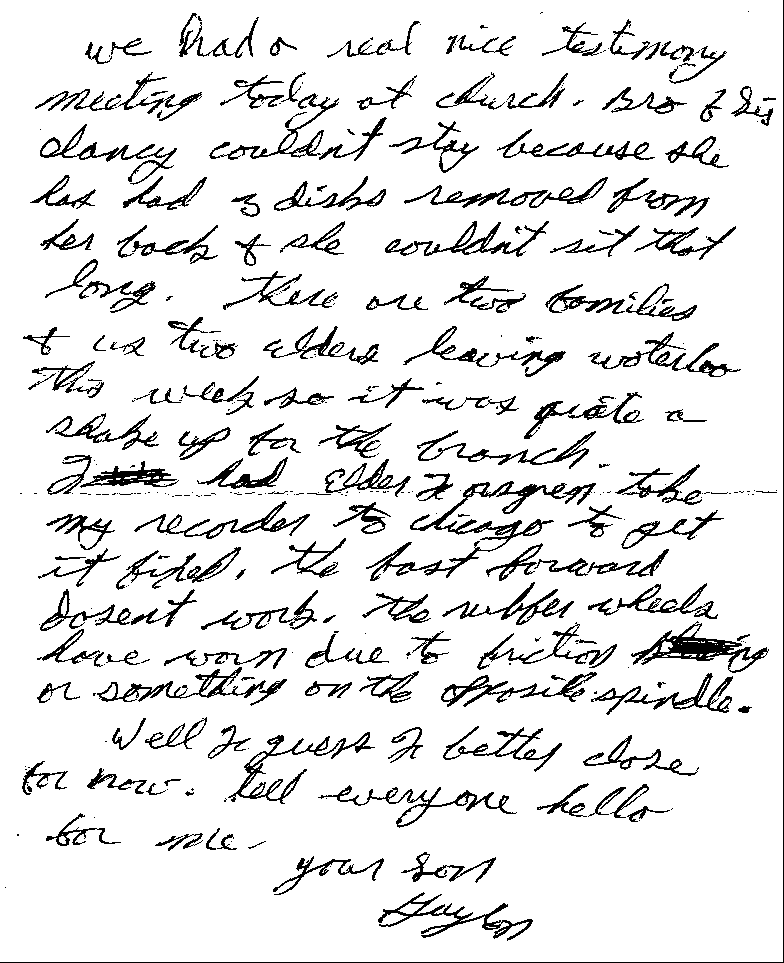 we had a real nice testimony
meeting today at church. Bro & Sis
clancy couldn't stay because she
has had 3 disks removed from
her back & she couldn't sit that
long. There are two families
& us two elders leaving waterloo
this week so it was quite a
shake up for the branch.
I had Elder Forsgren take
my recorder to chicago to get
it fixed. The fast forward
dosent work. The rubber wheels
have worn due to friction
or something on the opposite spindle.
Well I guess I better close
for now. Tell everyone hello
for me.
your son